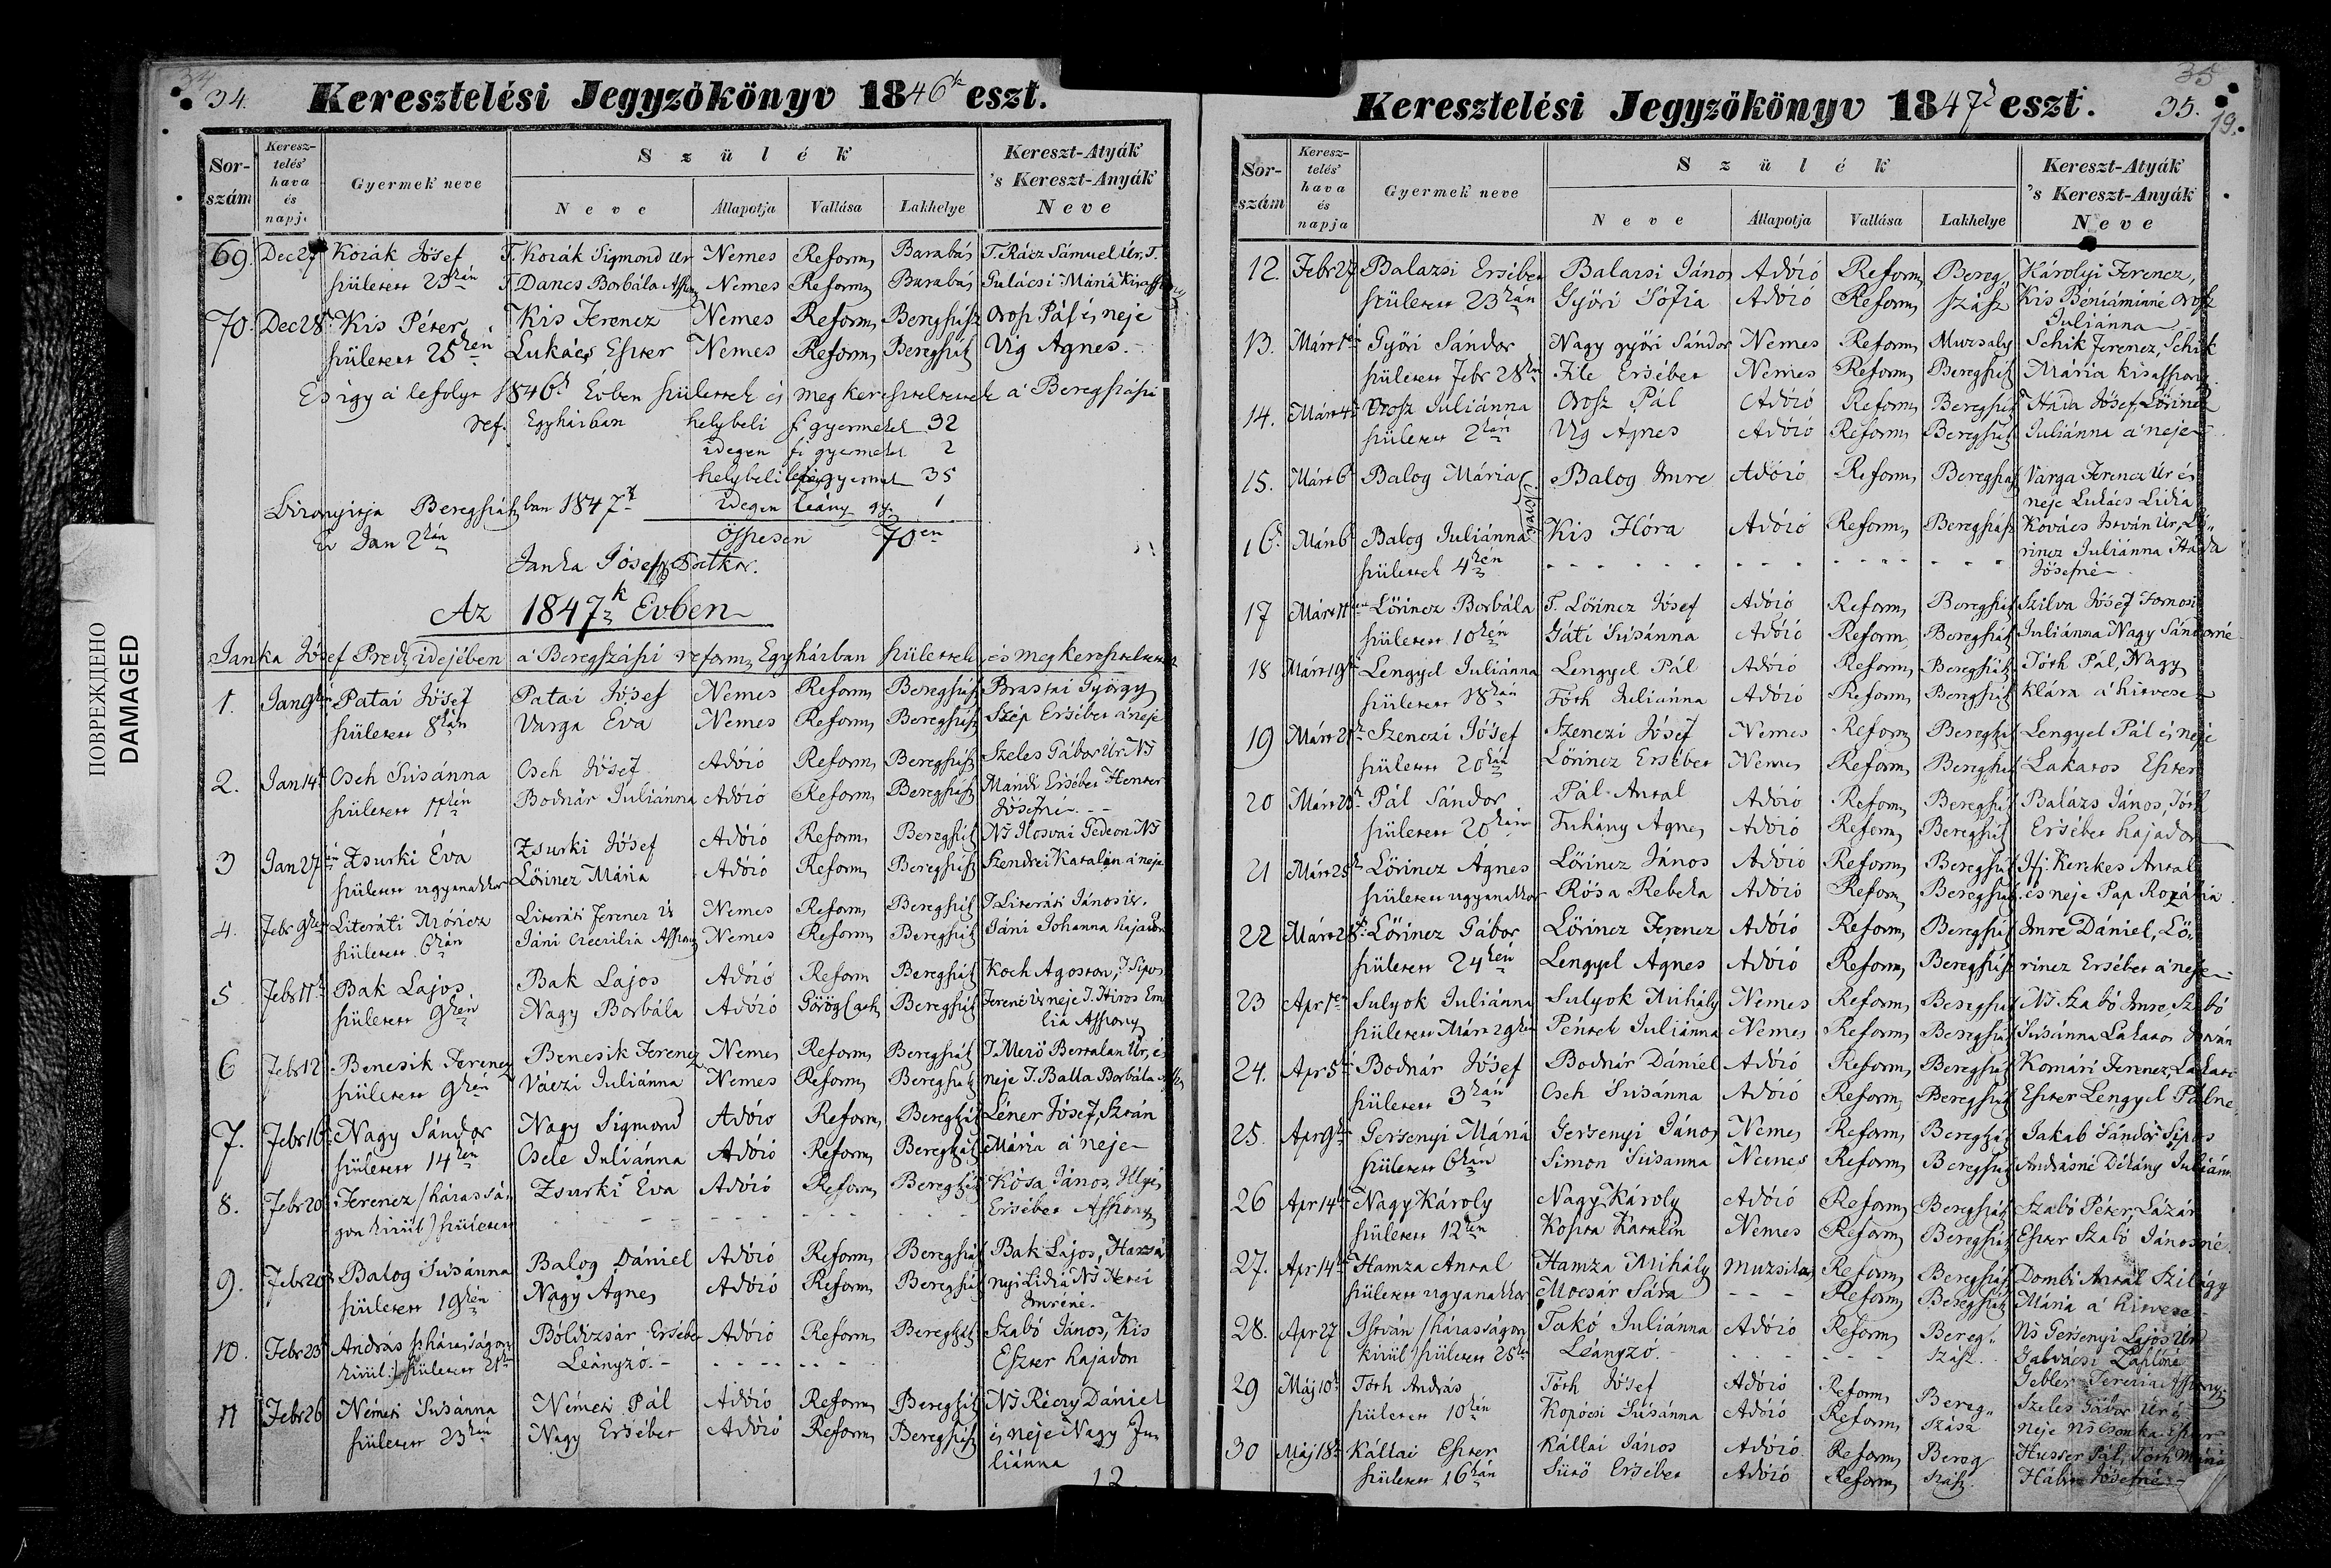 34
34.
Keresztelési Jegyzökönyv 1846k eszt.
Sor-szám
Keresz-telés' hava és napja
Gyermek neve
Szülék
Neve
Állapotja
Vallása
Lakhelye
Kereszt-Atyák 's Kereszt-Anyák Neve
69. Dec 27 Kozák Jósef T. Kozák Sigmond Ur Nemes Reform Barabás T. Rácz Sámuel Úr, T.
született 23kán T. Dancs Borbála Nemes Reform Barabás Gulácsi Mária
70. Dec 28 Kis Péter Kis Ferencz Nemes Reform Beregszász Orosz Pál és neje
született 25kén Lukács Eszter Nemes Reform Beregszász Vig Agnes.
És igy á lefolyt 1846k Évben születtek és megkereszteltettek á Beregszászi
ref. Egyházban helybeli fi gyermekek 32
idegen fi gyermekek 2
helybeli leány gyermek 35
Bizonyitja Beregszászban 1847k idegen leány gy. 1
Év Jan 2kán Öszvesen 70en
Janka Jósef
Az 1847k Évben
Janka Jósef Pred. idejében á Beregszászi reform Egyházban születtek és megkereszteltettek
1. Jan 9 Patai Jósef Patai Jósef Nemes Reform Beregszász Brassai György
született 8kán Varga Eva Nemes Reform Beregszász Szép Ersébet á neje
2. Jan 14 Cseh Susánna Cseh Jósef Adózó Reform Beregszász Szeles Gábor Úr NS
született 11kén Bodnár Juliánna Adózó Reform Beregszász Mándi Ersébet Henter
Jósefné
3 Jan 27 Zsurki Éva Zsurki Jósef Adózó Reform Beregszász NS Ilosvai Gedeon NS
született ugyanakkor Lörincz Mária Adózó Reform Beregszász Szendrei Katalin á neje
4. Febr 9 Literáti Móricz Literáti Ferencz Úr Nemes Reform Beregszász T. Literáti János úr.
született 6kán Jáni Nemes Reform Beregszász Jáni Johanna hajadon
5 Febr 11 Bak Lajos Bak Lajos Adózó Reform Beregszász Koch Agoston, T. Sipos
született 9kén Nagy Borbála Adózó Görög Cath Beregszász Ferencz Úr neje T. Hiros Emi
lia Asszony
6 Febr 12 Bencsik Ferencz Bencsik Ferencz Nemes Reform Beregszász T. Merö Bertalan Úr, és
született 9kén Váczi Juliánna Nemes Reform Beregszász neje T. Balla Borbála
7. Febr 16 Nagy Sándor Nagy Sigmond Adózó Reform Beregszász Léner Jósef, Sztán
született 14kén Csele Juliánna Adózó Reform Beregszász Mária á neje
8. Febr 20 Ferencz /házassá- Zsurki Eva Adózó Reform Beregszász Kósa János, Illyés
gon kivül/ született Ersébet Asszony
9. Febr 20 Balog Susánna Balog Dániel Adózó Reform Beregszász Bak Lajos, Harsá
született 19kén Nagy Ágnes Adózó Reform Beregszász nyi Lidia NS
Imréné.
10. Febr 23 András /:házasságon Bóldizsár Ersébet Adózó Reform Beregszász Szabó János, Kis
kivül:/ született 21kén Leányzó. Eszter hajadon
11 Febr 26 Németi Susánna Németi Pál Adózó Reform Beregszász NS Réczy Dániel
született 23kán Nagy Ersébet Adózó Reform Beregszász és neje Nagy Ju
liánna
12.
35
35.
19.
Keresztelési Jegyzökönyv 1847k eszt.
Sor-szám
Keresz-telés' hava és napja
Gyermek neve
Szülék
Neve
Állapotja
Vallása
Lakhelye
Kereszt-Atyák 's Kereszt-Anyák Neve
12. Febr 27 Balazsi Ersébet Balazsi János Adózó Reform Bereg, Károlyi Ferencz,
született 23kán Györi Sófia Adózó Reform szász Kis Béniáminné Orosz
Juliánna
13. Márt 1 Györi Sándor Nagy györi Sándor Nemes Reform Muzsaly Schik Ferencz, Schik
született Febr 28kán File Ersébet Nemes Reform Beregszász Mária kisasszony
14. Márt 4 Orosz Juliánna Orosz Pál Adózó Reform Beregszász Háda Jósef, Lörincz
született 2kán Vig Agnes Adózó Reform Beregszász Juliánna á neje
15. Márt 6 Balog Mária Balog Imre Adózó Reform Beregszász Varga Ferencz Úr és
neje Lukács Lidia
16. Márt 6 Balog Juliánna Kis Flóra Adózó Reform Beregszász Kovács István Úr, Lö
született 4kén rincz Juliánna Háda
Jósefné
17 Márt 11 Lörincz Borbála T. Lörincz Jósef Adózó Reform Beregszász Szilva Jósef Fornosi
született 10kén Gáti Susánna Adózó Reform Beregszász Juliánna Nagy Sándorné
18 Márt 19 Lengyel Juliánna Lengyel Pál Adózó Reform Beregszász Tóth Pál, Nagy
született 18kán Tóth Juliánna Adózó Reform Beregszász Klára á hitvese
19 Márt 21 Szenczi Jósef Szenczi Jósef Nemes Reform Beregszász Lengyel Pál és neje
született 20kán Lörincz Ersébet Nemes Reform Beregszász Lakatos Eszter
20 Márt Pál Sándor Pál Antal Adózó Reform Beregszász Balázs János, Tóth
született 20kán Tuhány Agnes Adózó Reform Beregszász Ersébet hajadon
21 Márt 25 Lörincz Ágnes Lörincz János Adózó Reform Beregszász Ifj. Kerekes Antal
született ugyanakkor Rósa Rebeka Adózó Reform Beregszász és neje Pap Rozália
22 Márt 28 Lörincz Gábor Lörincz Ferencz Adózó Reform Beregszász Imre Dániel, Lö
született 24kén Lengyel Ágnes Adózó Reform Beregszász rincz Ersébet á neje
23 Apr 1 Sulyok Juliánna Sulyok Mihály Nemes Reform Beregszász NS Szabó Imre, Szabó
született Márt 29kén Péntek Juliánna Nemes Reform Beregszász Susánna Lakatos
24. Apr 5 Bodnár Jósef Bodnár Dániel Adózó Reform Beregszász Komári Ferencz, Lakatos
született 3kán Cseh Susánna Adózó Reform Beregszász Eszter Lengyel Pálné
25. Apr 9 Gersenyi Mária Gersenyi János Nemes Reform Beregszász Jakab Sándor Sipos
született 6kán Simon Susanna Nemes Reform Beregszász Andrásné Dékány Juliánna
26 Apr 14 Nagy Károly Nagy Károly Adózó Reform Beregszász Szabó Péter, Lázár
született 12kén Kopta Katalin Nemes Reform Beregszász Eszter Szabó Jánosné
27. Apr 14 Hamza Antal Hamza Mihály muzsikás Reform Beregszász Dombi Antal Szilágyi
született ugyanakkor Mocsár Sára Reform Beregszász Mária á hitvese
28. Apr 27 István /házasságon Takó Juliánna Adózó Reform Bereg, NS Gersenyi Lajos Úr
kivül/ született 25kén Leányzó. szász
29 Máj 10 Tóth András Tóth Jósef Adózó Reform Bereg, Szeles Gábor Úr és
született 10kén Kopócsi Susánna Adózó Reform szász neje NS Csonka Eszter
30 Máj 18 Kállai Eszter Kállai János Adózó Reform Bereg Huszer Pál, Tóth Mária
született 16kán Sütö Ersébet Adózó Reform szász Jósefné
ПОВРЕЖДЕНО
DAMAGED